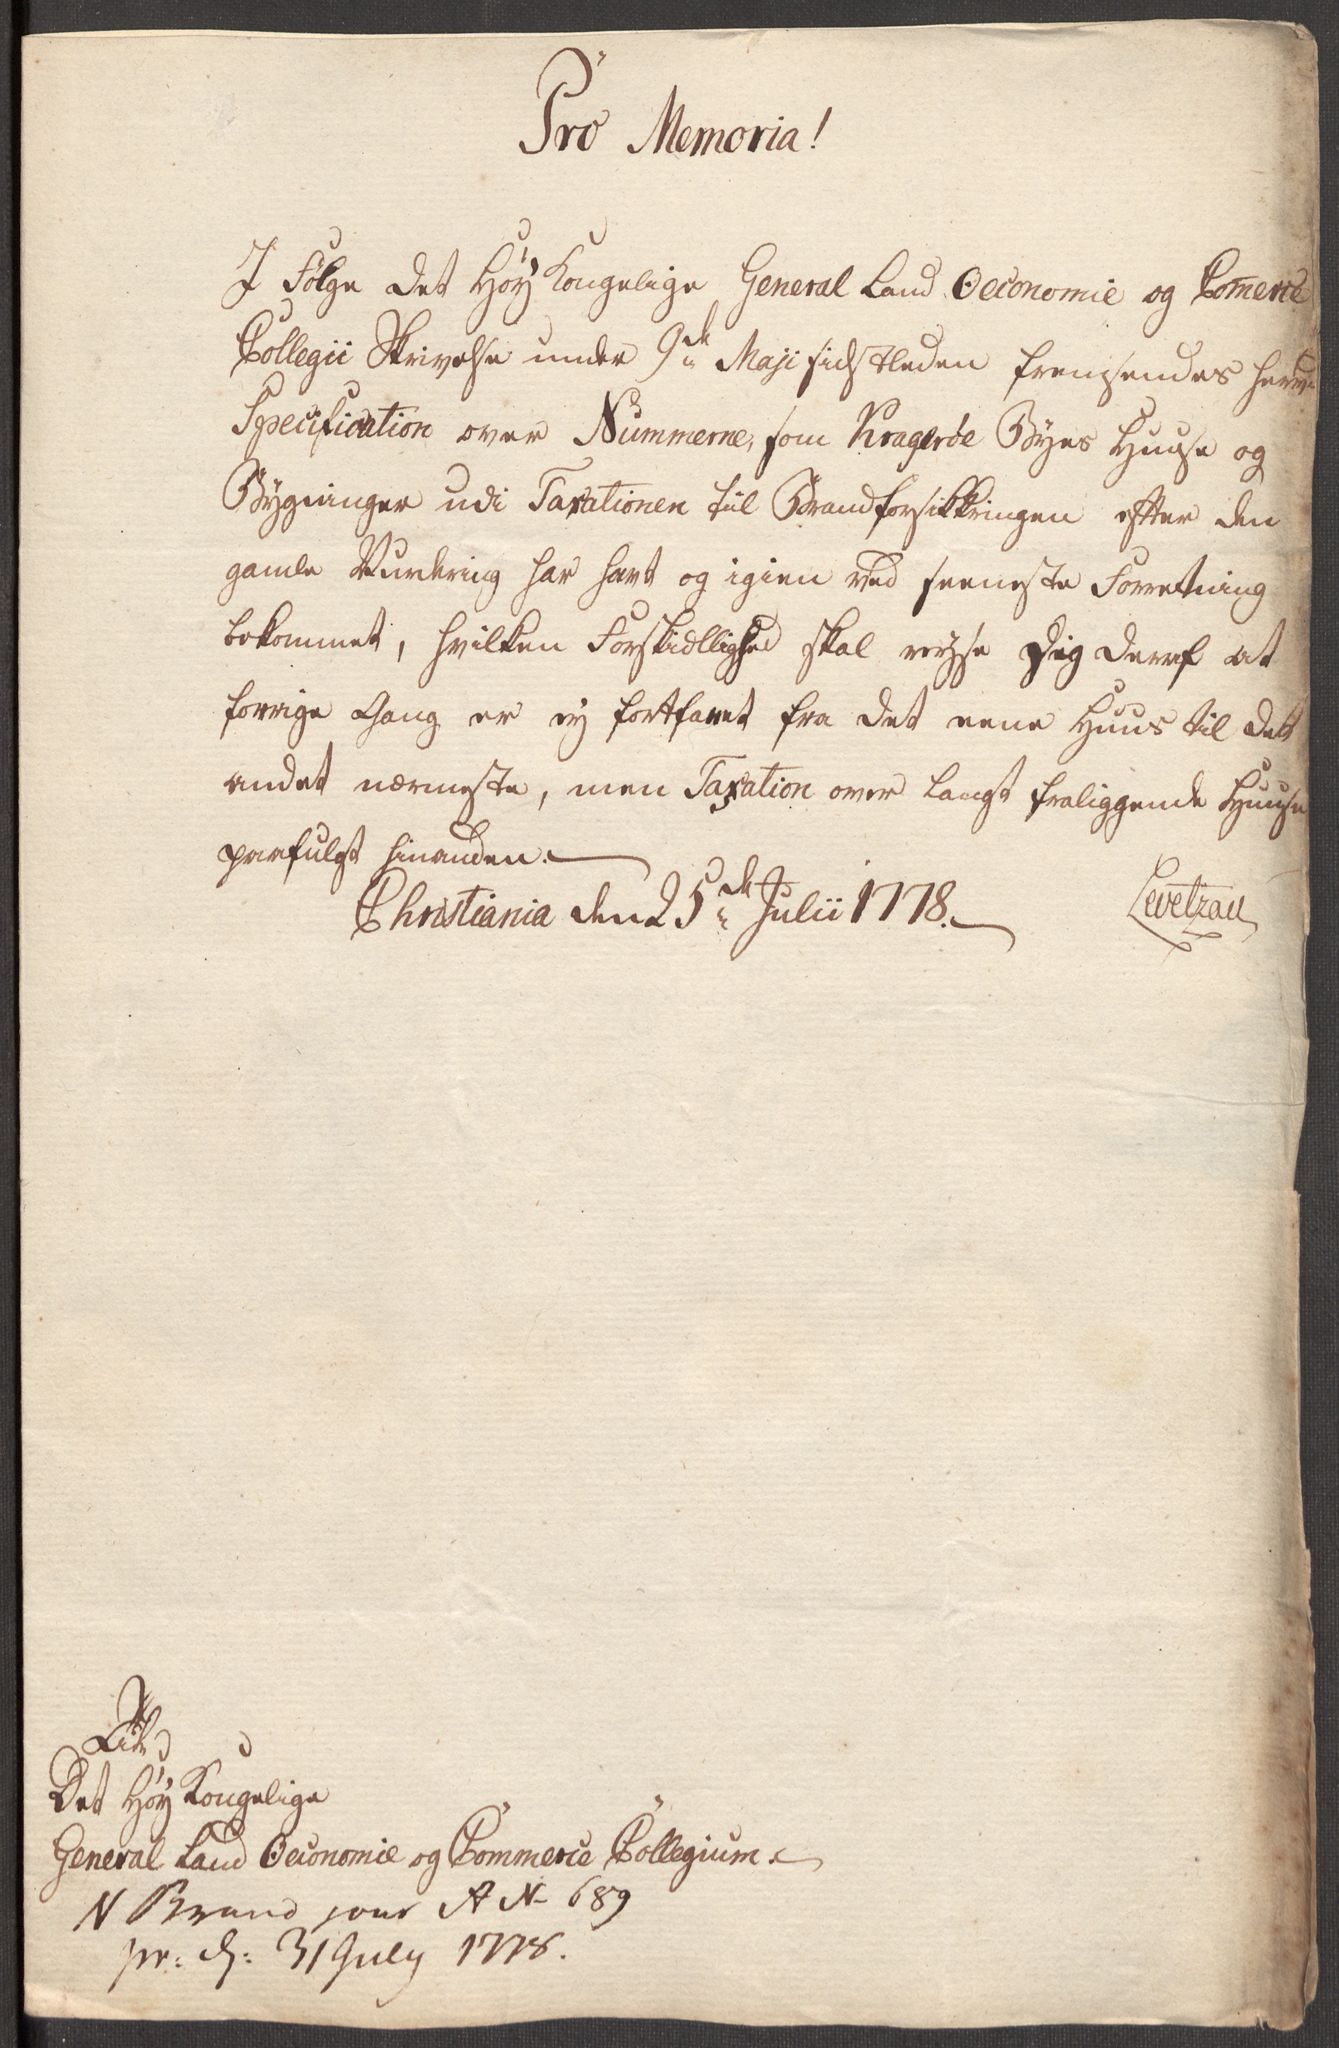 Pro Memoria!
I Følge det Høy Kongelige General Land Oeconomie og Com̄erce
Collegii Skrivelse under 9de Maji sidstleden fremsendes herved
Specification over Nummerne, som Kragerøe Byes Huuse og
Bygninger udi Taxationen til Brandforsikkringen efter den
gamle Vurdering har havt og igien ved seeneste Forretning
bekommet, hvilken Forskiellighed skal reyse sig deraf at
forrige Gang er ey fortfaret fra det eene Huus til det
andet nærmeste, men Taxation over langt fraliggende Huuse
paafulgt hinanden.
Christiania den 25de Julii 1778.
Levetzau
Til
Det Høy Kongelige
General Land Oeconomie og Commerce Collegium.
N Brand jour A No 689
pr: d: 31 July 1778.